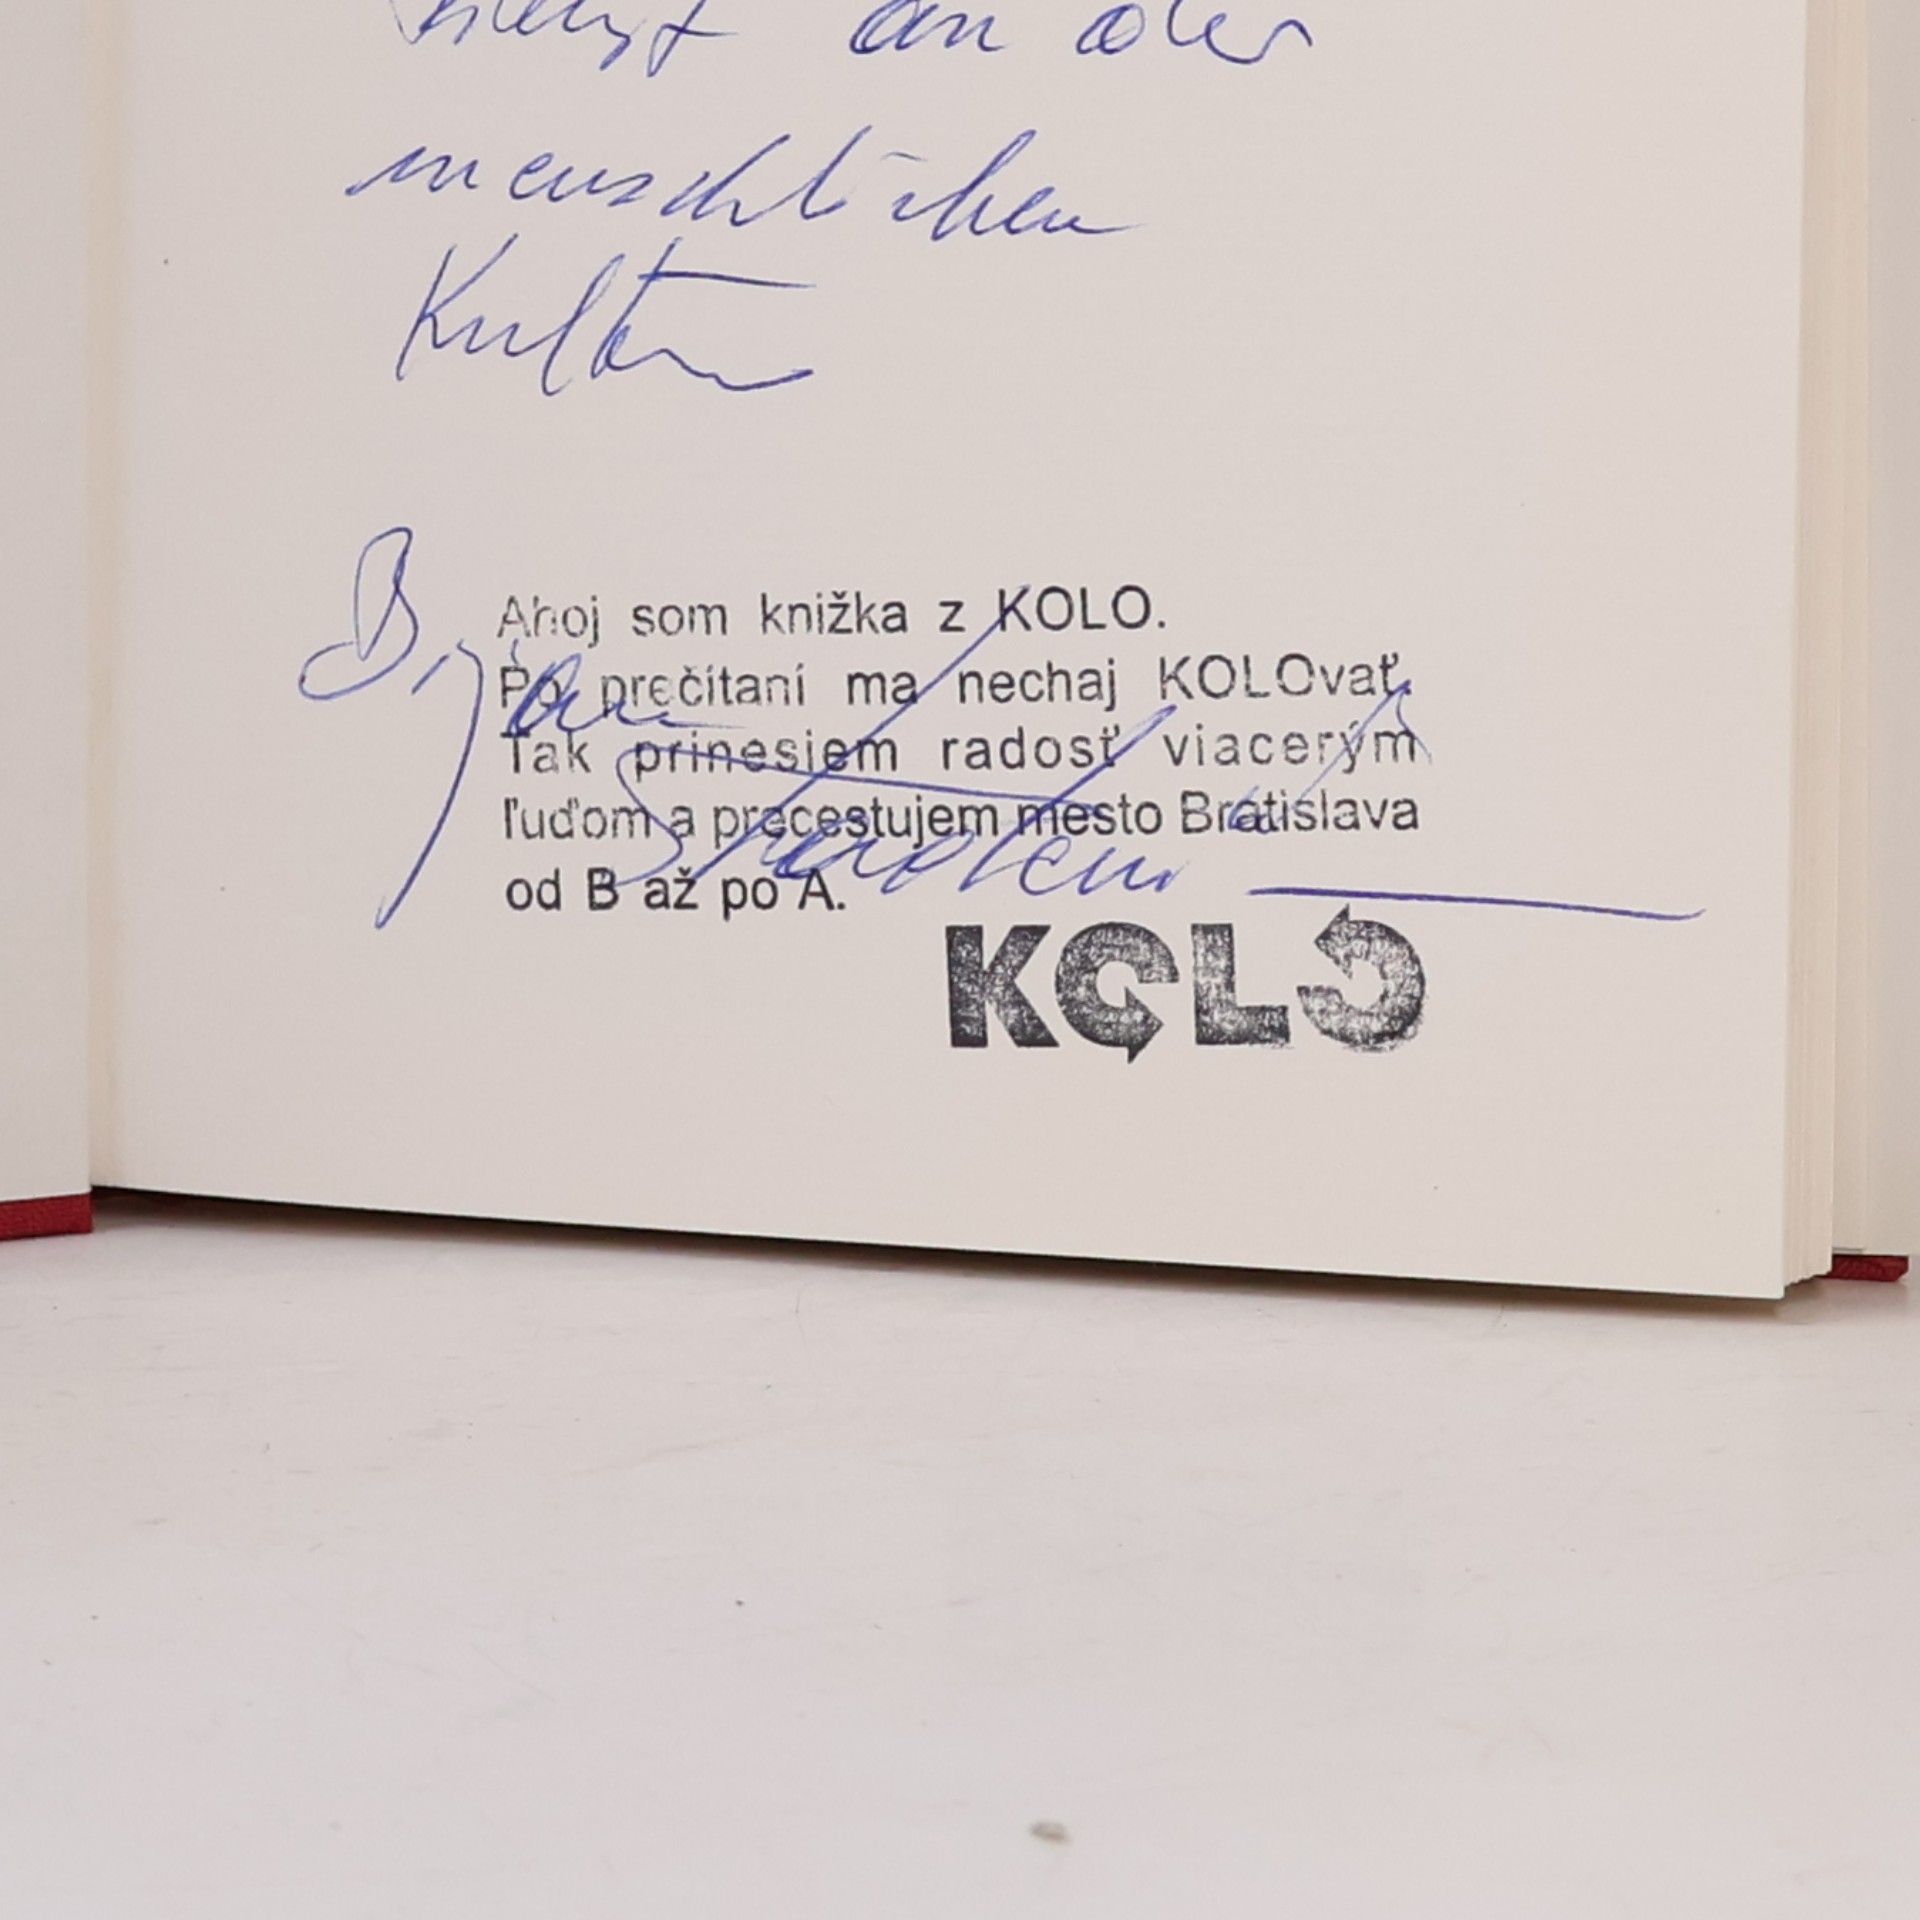 an der
menschlichen
Kultur
Ahoj som knižka z KOLO.
Po prečítaní ma nechaj KOLOvať.
Tak prinesiem radosť viacerým
ľuďom a precestujem mesto Bratislava
od B až po A.
KOLO